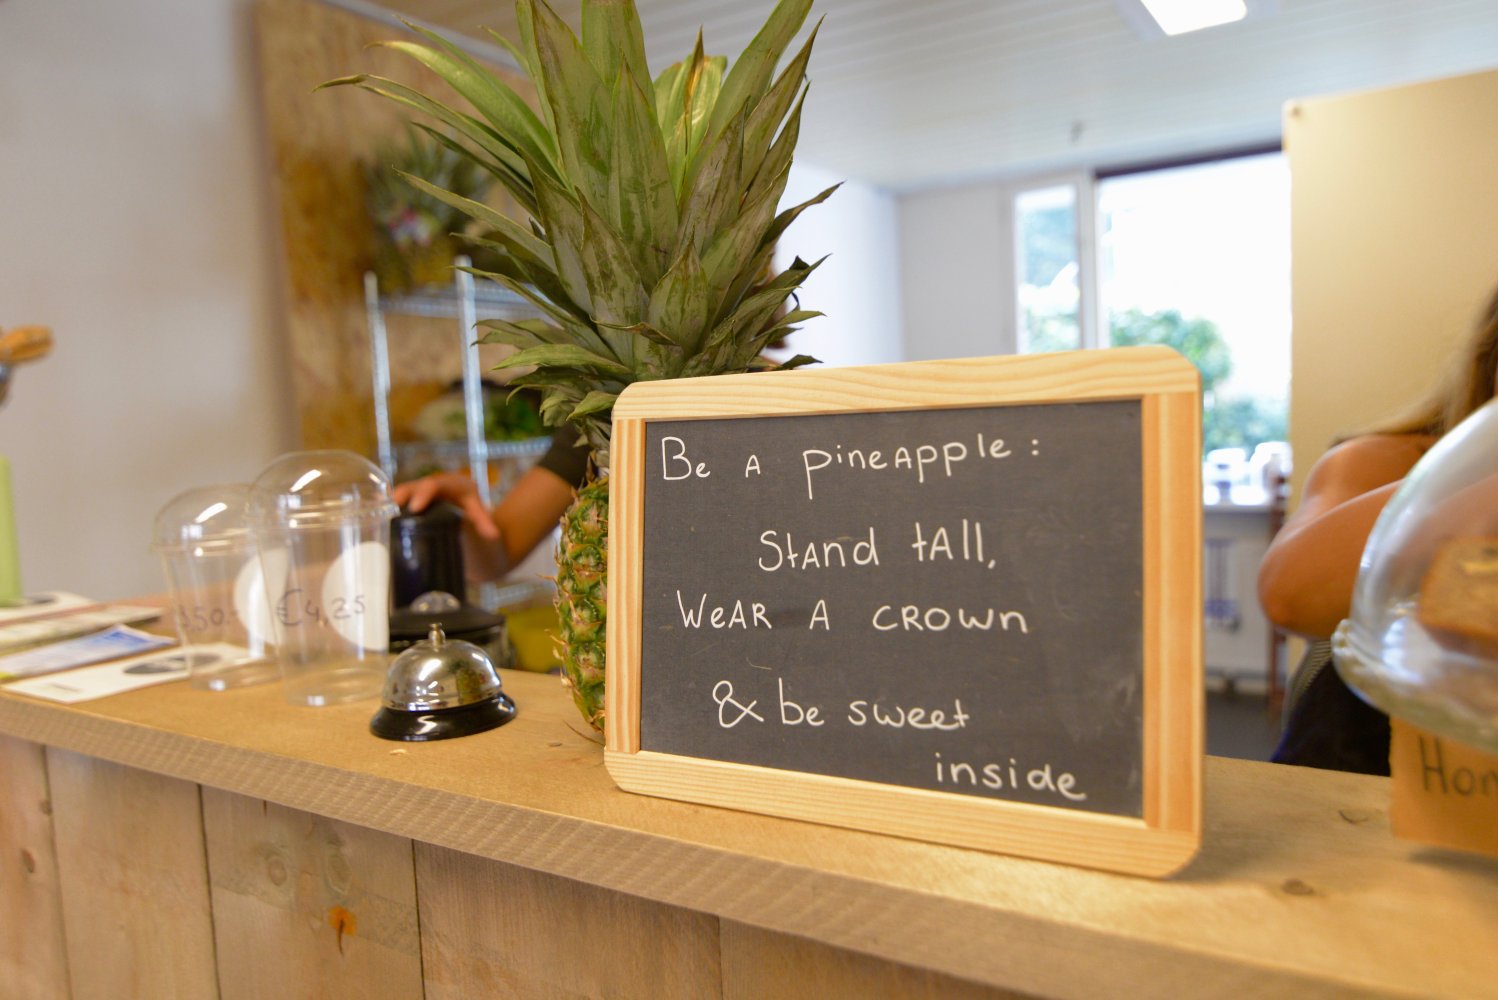 Be A pineApple:
StAnd tAll,
WeAR A CROWN
& be sweet
inside
€4,25